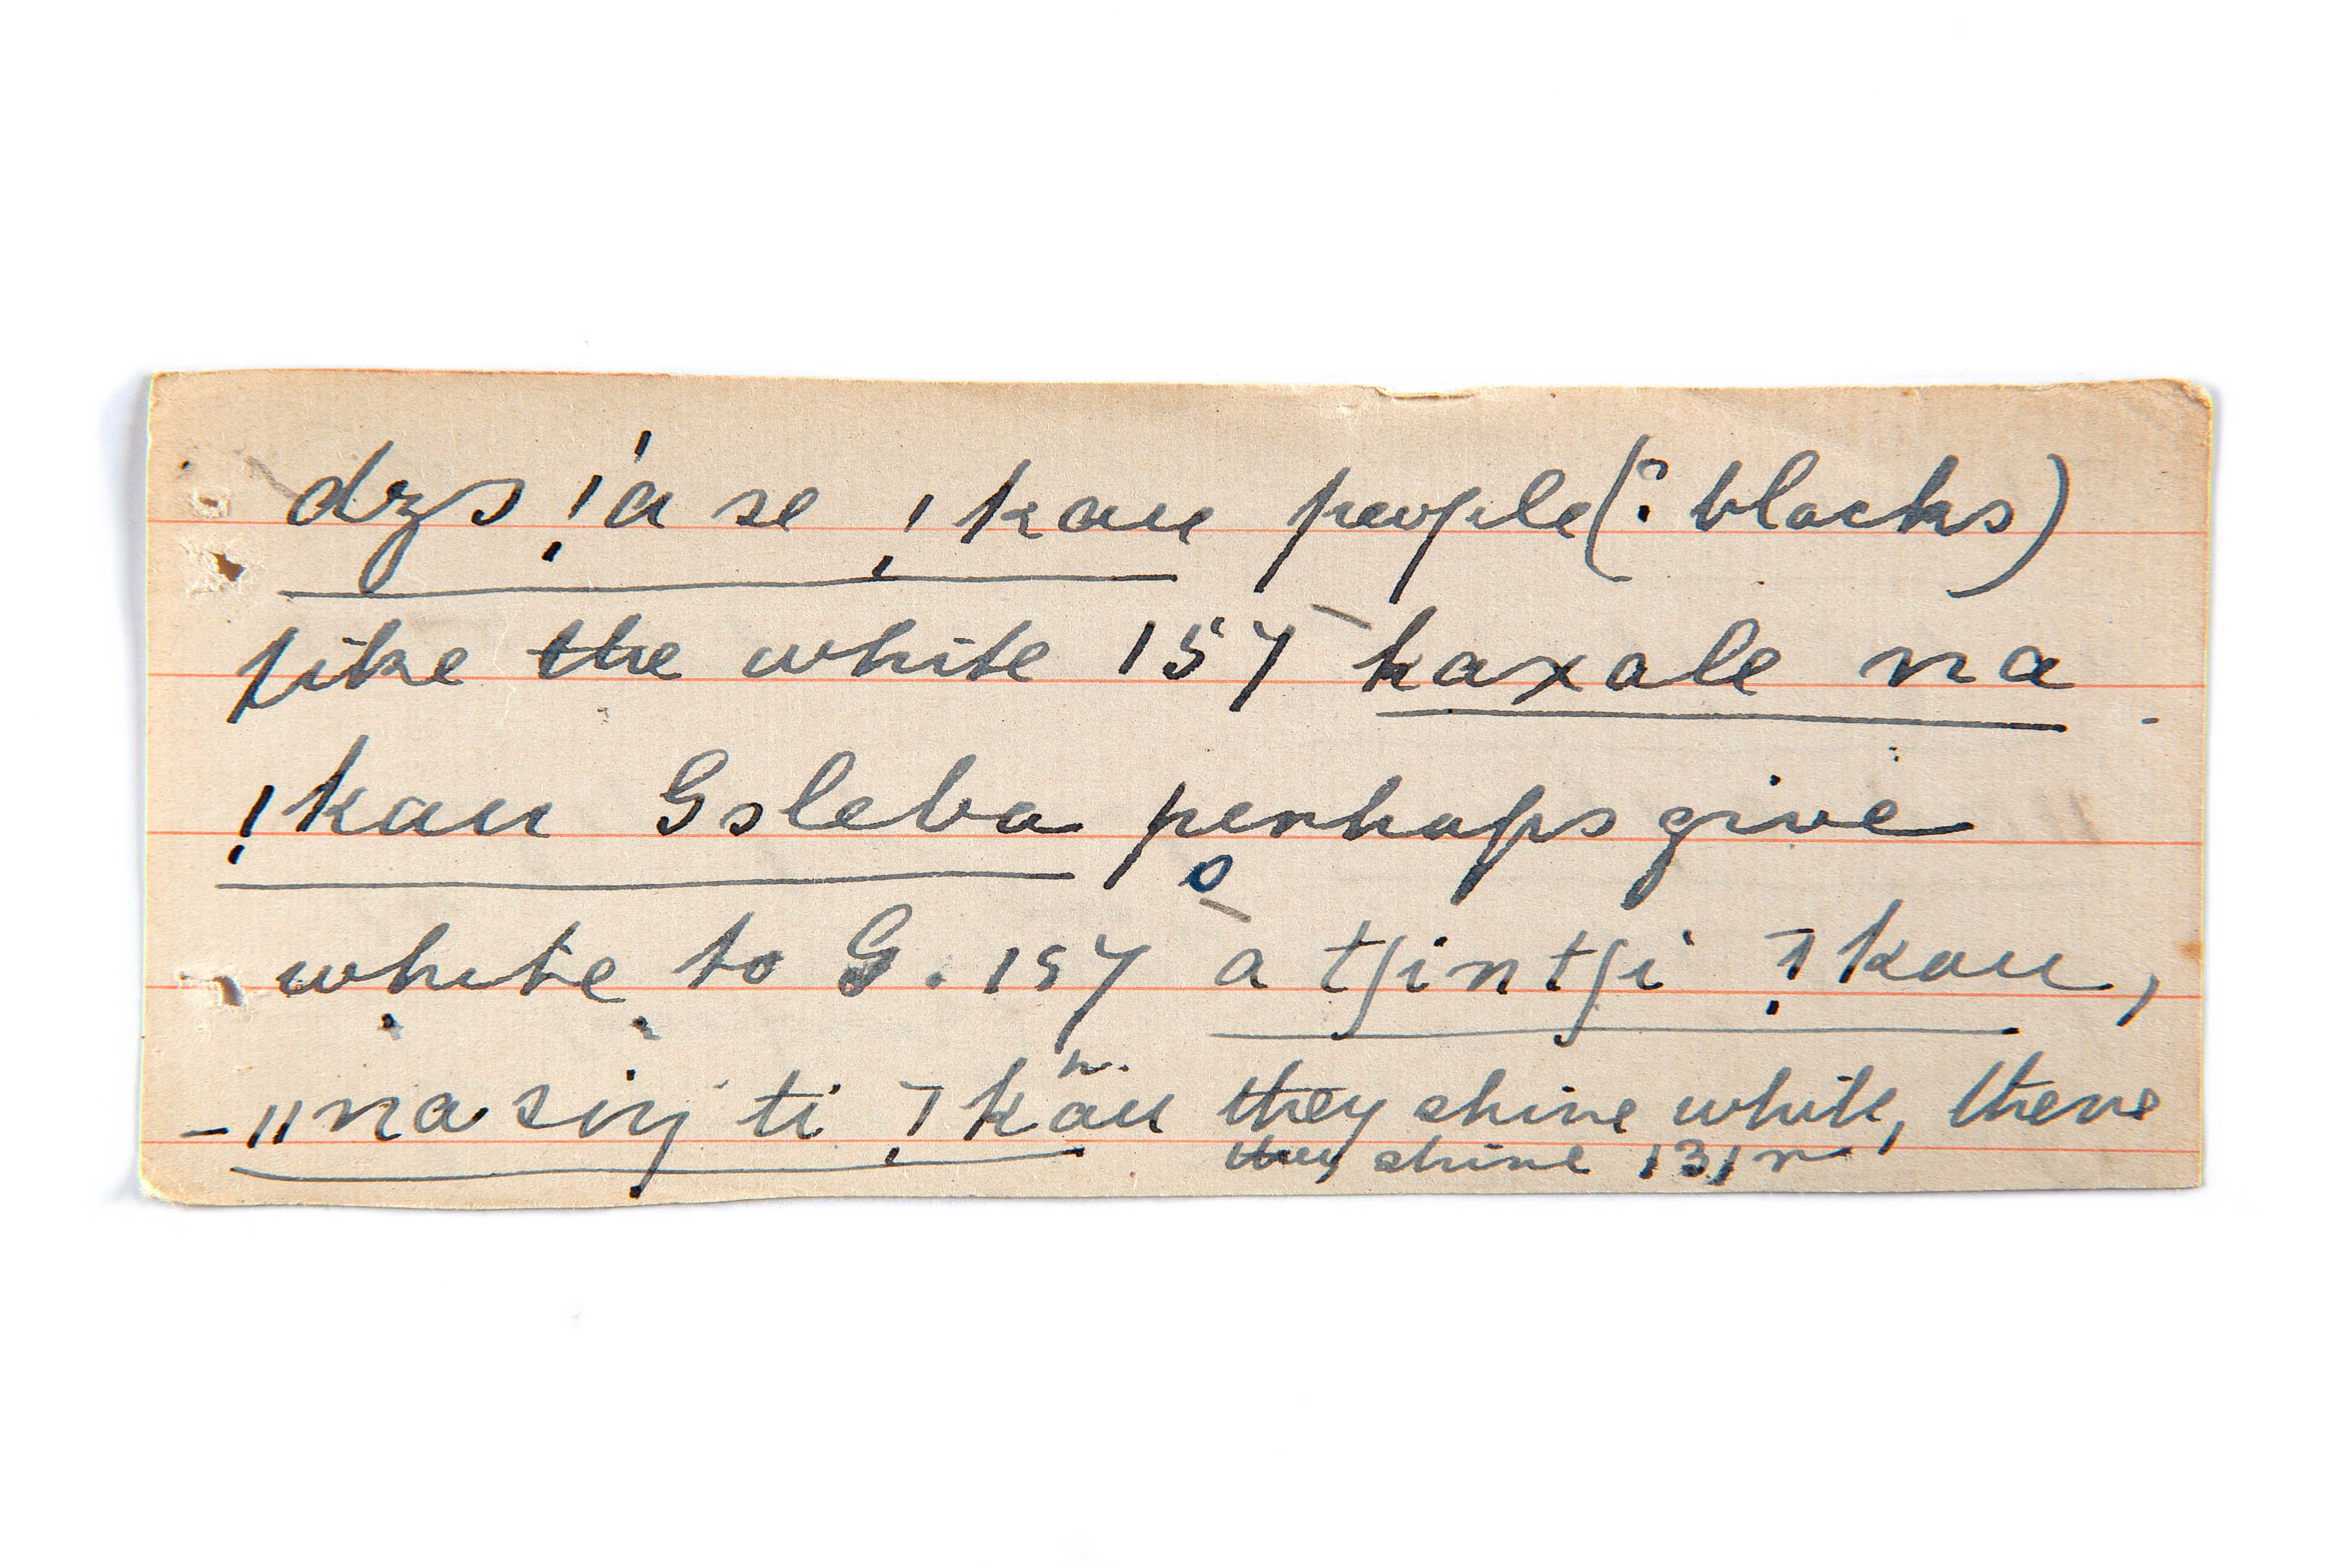 dzs !'a se !kau people (? blacks)
like the white 157 kaxale na
!kau Gsleba perhaps give
white to G. 157 a tʃintʃi ⊺kau,
-||na siŋ ti ⊺kau they shine white, there
they shine 131 r